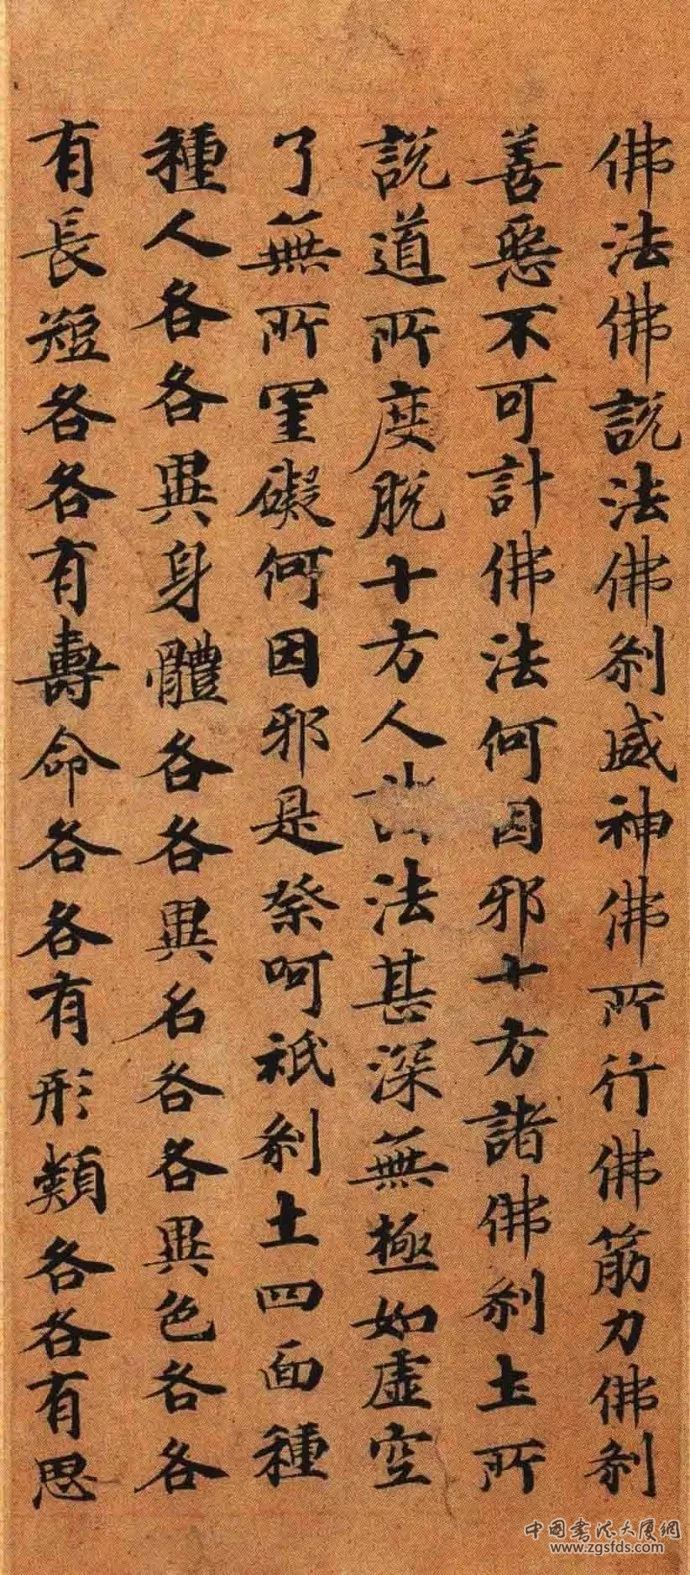 佛法佛說法佛刹威神佛所行佛筋力佛刹
善惡不可計佛法何因邪十方諸佛刹土所
說道所度脫十方人法甚深無極如虛空
了無所罣礙何因邪是祭呵祇刹土四面種
種人各各異身體各各異名各各異色各各
有長短各各有壽命各各有形類各各有思
中国书法大厦網
www.zgsfds.com